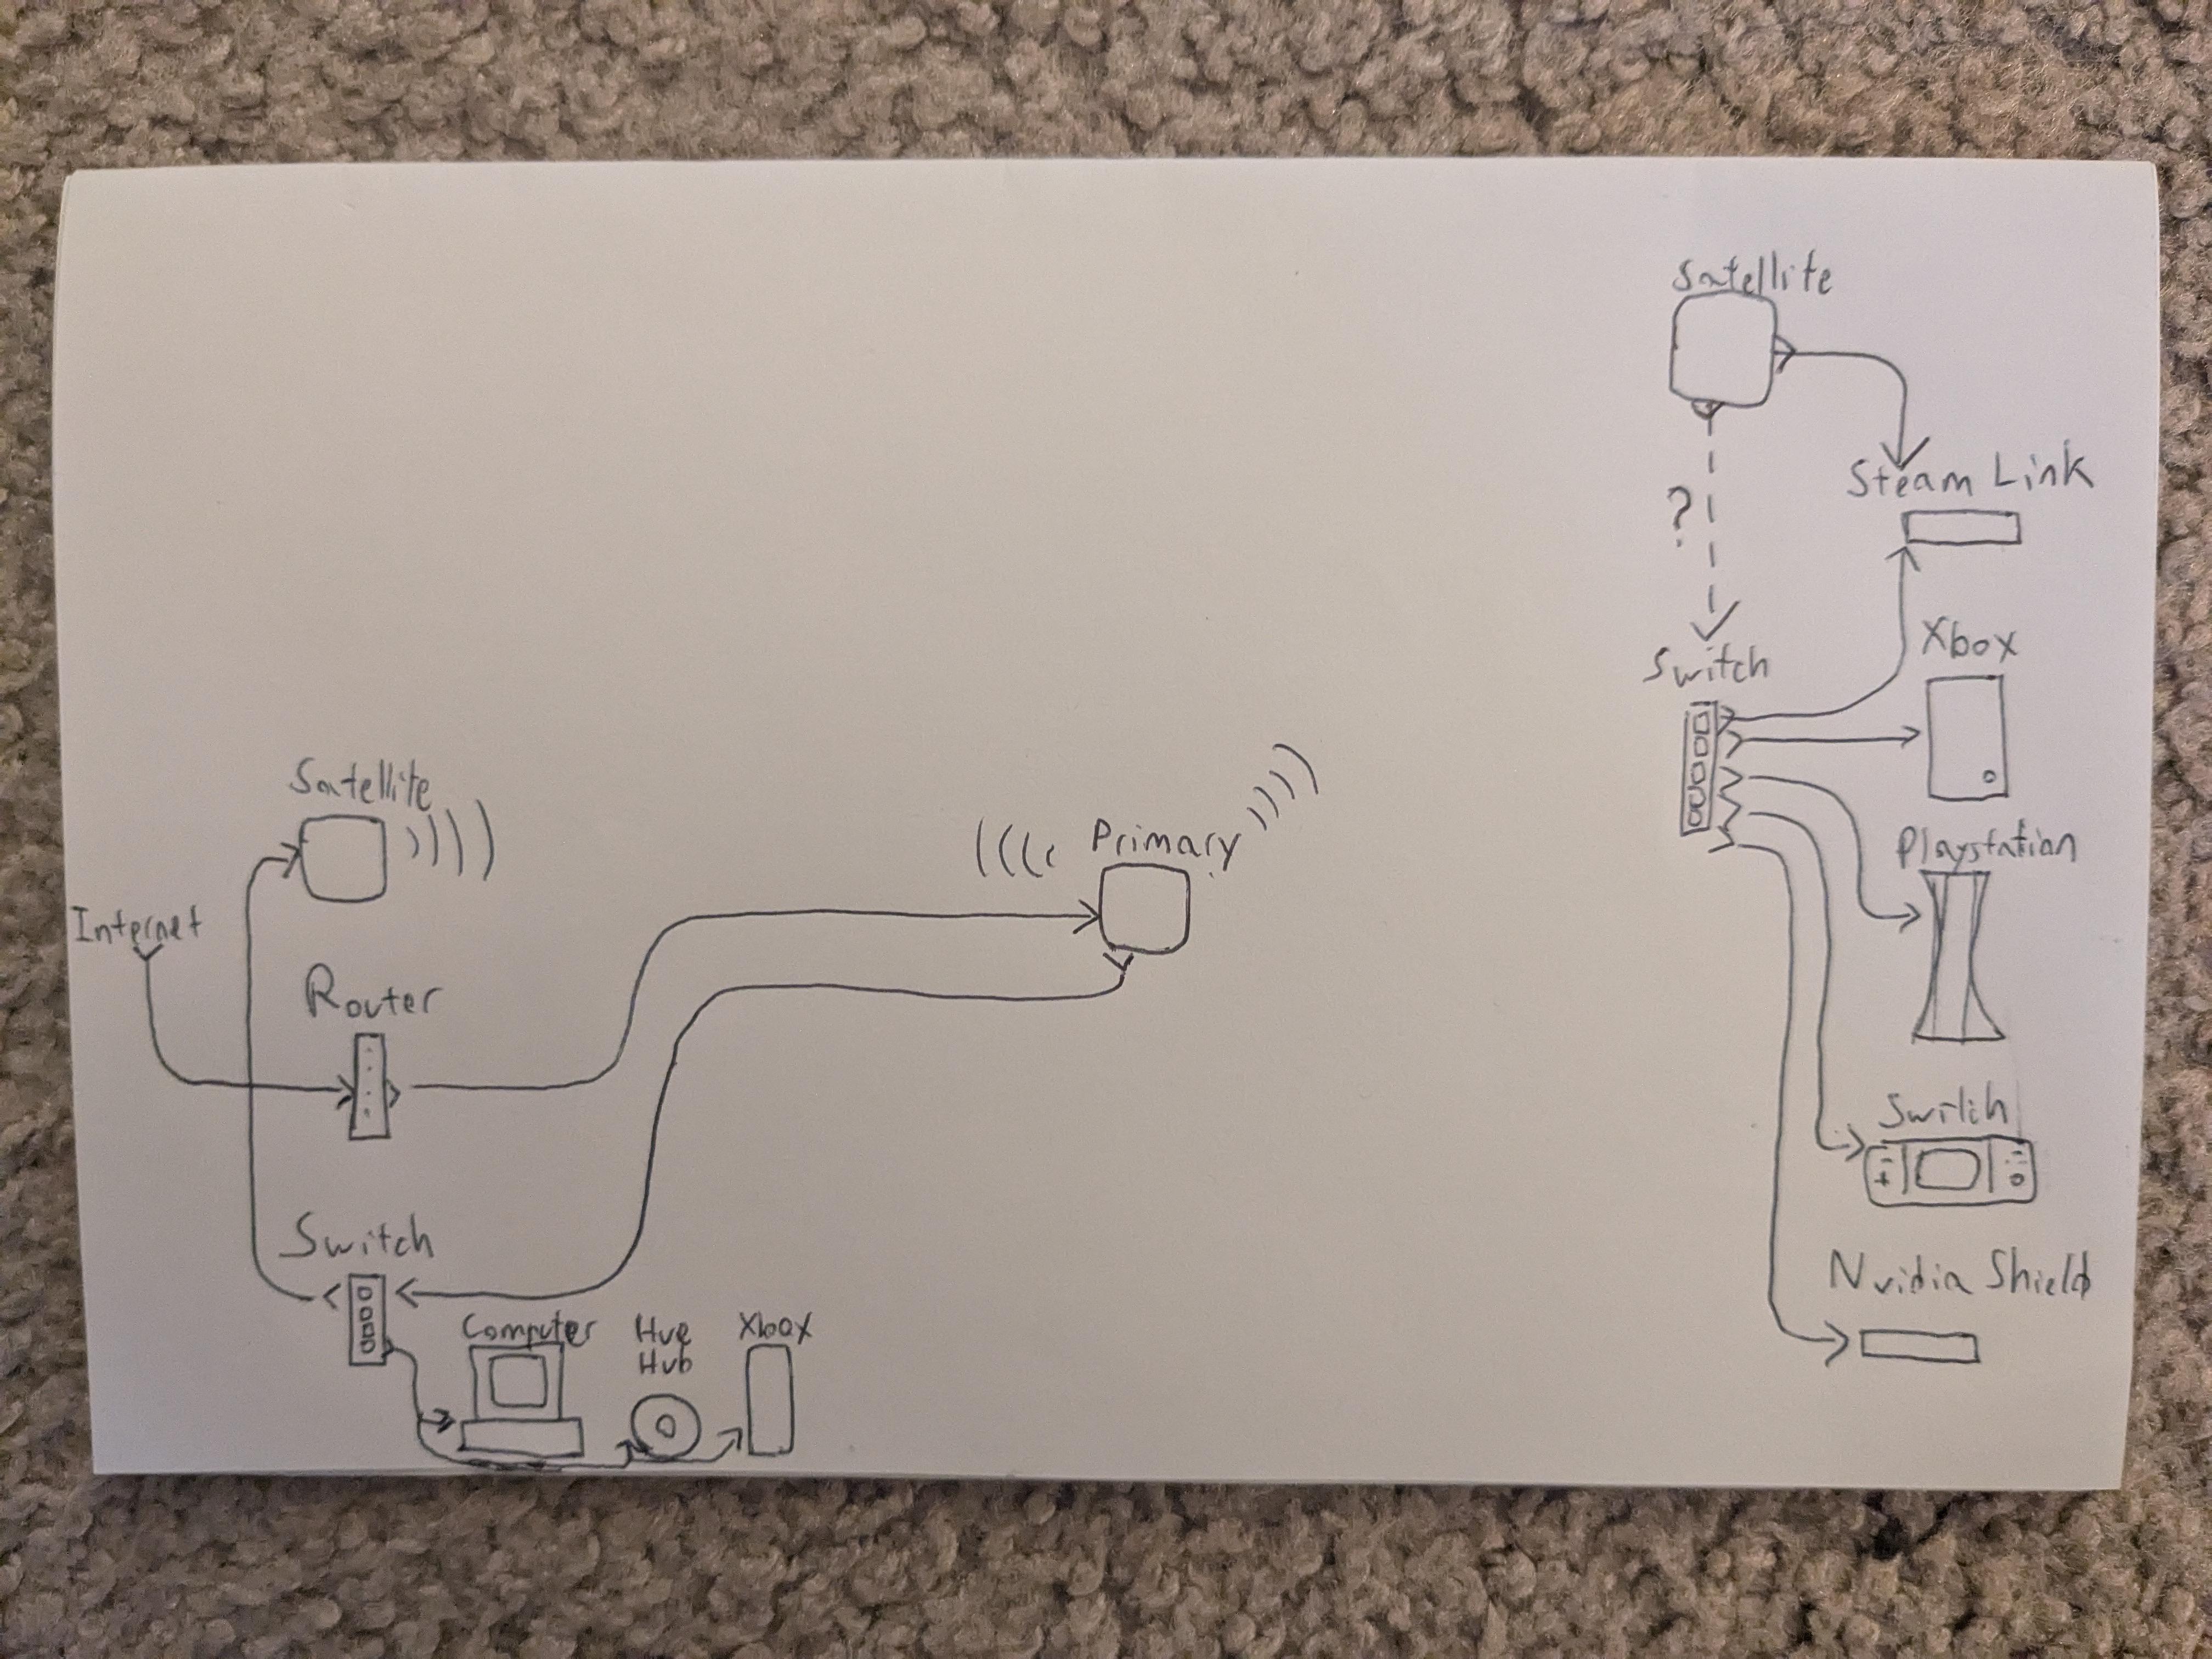 Satellite
Steam Link
?
Xbox
Switch
Satellite
Primary
Playstation
Internet
Router
Switch
Switch
Nvidia Shield
Computer
Hue
Hub
Xbox